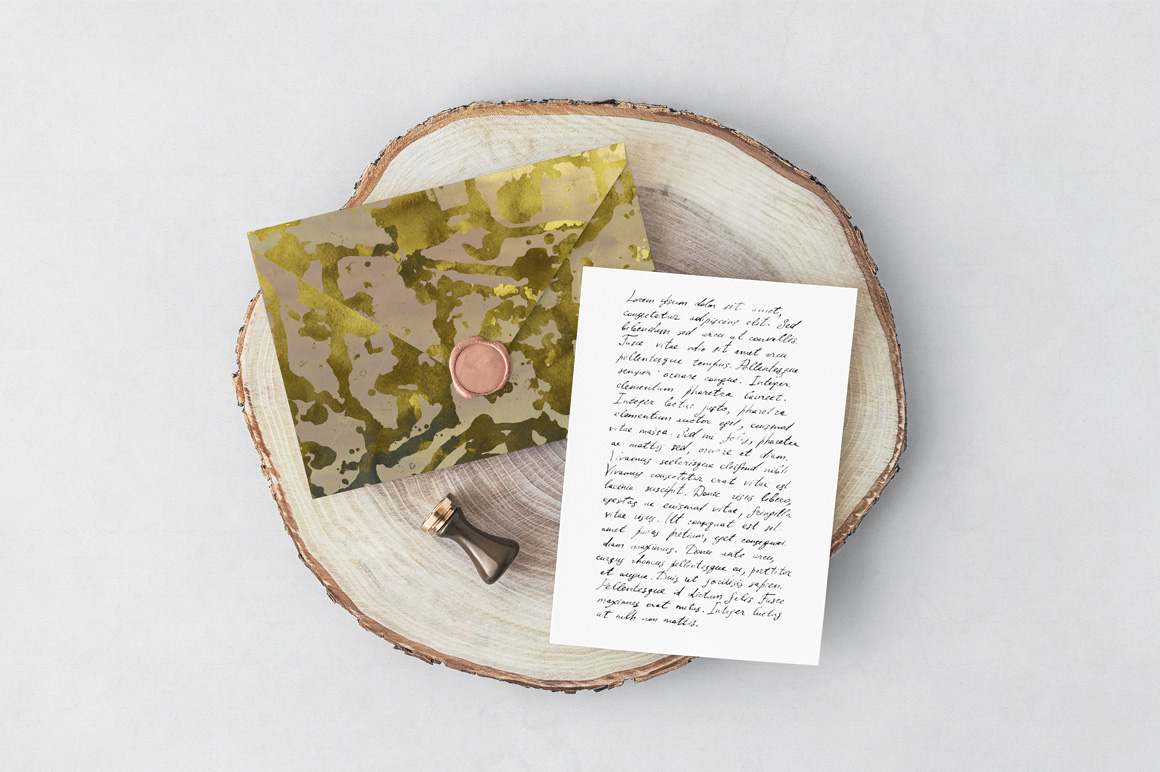 Lorem ipsum dolor sit amet,
consectetur adipiscing elit. Sed
bibendum sed arcu ut convallis.
Fusce vitae odio sit amet arcu
pellentesque tempus. Pellentesque
semper ornare congue. Integer
elementum pharetra laoreet.
Integer lectus justo, pharetra
elementum auctor eget, euismod
vitae massa. Sed mi felis, pharetra
ac mattis sed, ornare et diam.
Vivamus scelerisque eleifend nibh
Vivamus consectetur erat vitae est
lacinia suscipit. Donec risus libero,
egestas ac euismod vitae, fringilla
vitae risus. Ut consequat est sit
amet purus pretium, eget consequat
diam maximus. Donec ante arcu,
cursus rhoncus pellentesque eu, porttitor
et augue. Duis ut facilisis sapien.
Pellentesque id dictum felis. Fusce
maximus erat metus. Integer luctus
ut nibh non mattis.